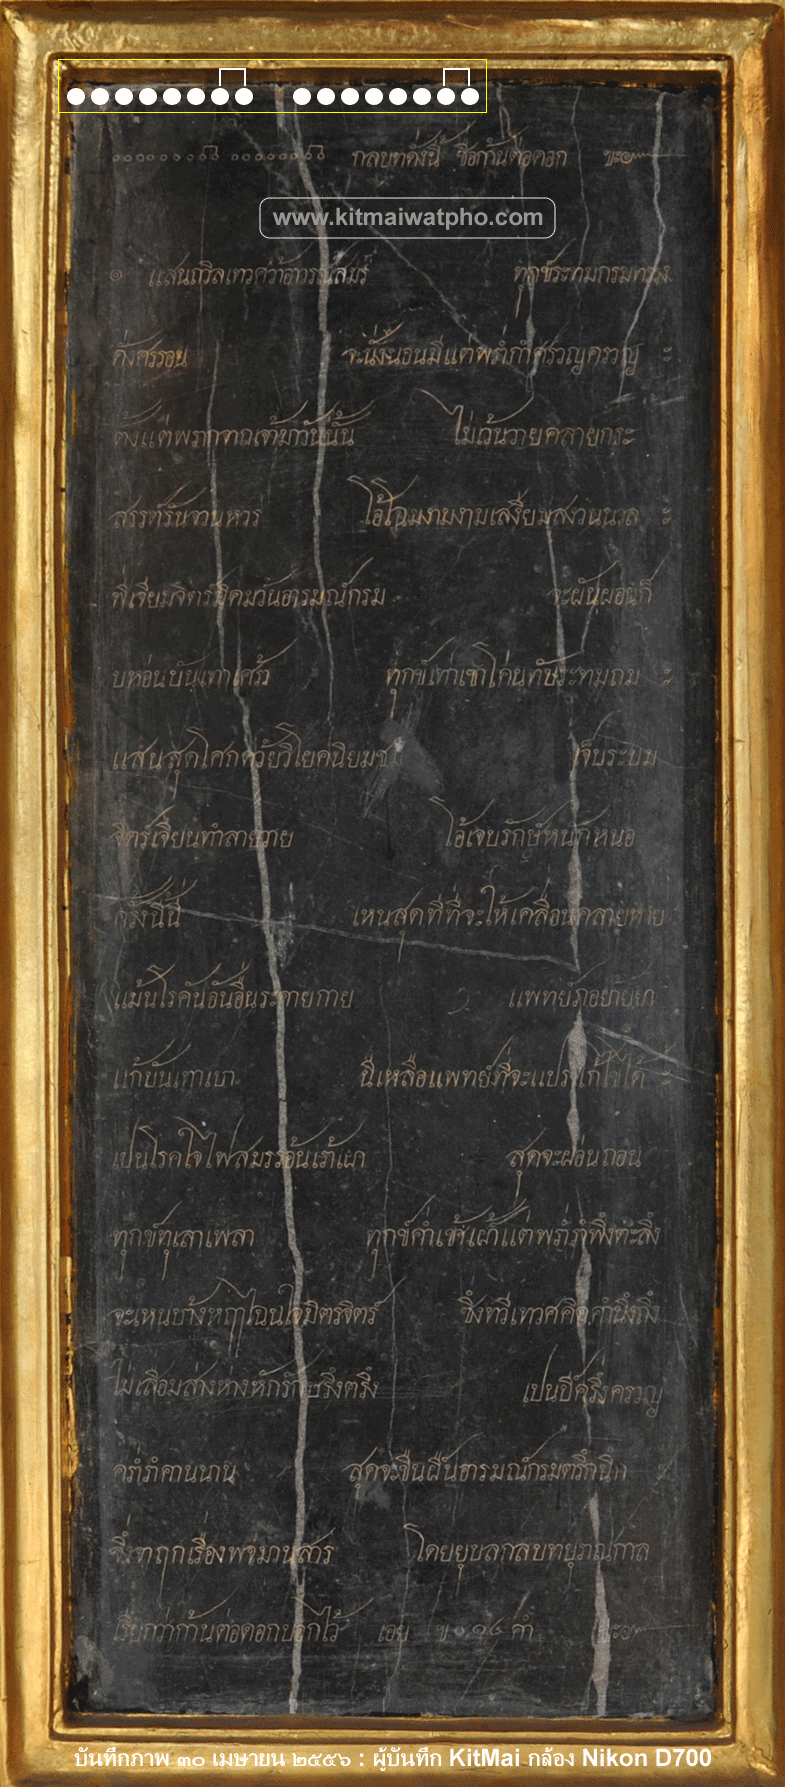 กลบทดั่งนี้ ชื่อก้านต่อดอก ขะ๛
www.kitmaiwatpho.com
๏ แสนถวิลเทวศว้าอาวรณ์สมร ทุกข์ระทมกรมทรวง
ดั่งศรรอน จะนั่งนอนมีแต่พร่ำกำศรวญครวญ ฯ
ตั้งแต่พรากจากเจ้ามาวันนั้น ไม่เว้นวายคลายกระ
สรรค์รันจวนหวร โอ้โฉมงามงามเสงี่ยมสงวนนวล ฯ
พี่เจียมจิตรมิคมวันอารมณ์กรม จะผันผ่อนก็
บห่อนบันเทาเศร้า ทุกข์เท่าเขาโค่นทับระทมถม ฯ
แสนสุดโศกด้วยวิโยคนิยม เจ็บระบม
จิตร์เจียนทำลายวาย โอ้เจบรักษ์หนักหนอ
ครั้งนี้นี่ เหนสุดที่ที่จะให้เคลื่อนคลายหาย
แม้นโรคันอันอื่นระคายกาย แพทย์ภอยายยา
แก้บันเทาเบา นี่เหลือแพทย์ที่จะแปรแก้ไขได้ ฯ
เป็นโรคใจไฟสมรรอ้นเร้าเผา สุดจะผ่อนถอน
ทุกข์ทุเลาเพลา ทุกข์ค่ำเช้าเฝ้าแต่พร่ำรำพึงตะลึง
จะเหนบ้างหฤๅไฉนใจมิตรจิตร์ ซึ่งทวีเทวศคิดคำนึงถึง
ไม่เลื่อมล่างห่างหักรักษรึงตรึง เปนปี่ครึ่งครวญ
คร่ำรำคานนาน สุดจะขืนฝืนอารมณ์กรมตรึกนึก ฯ
ซึ่งจาฤกเรื่องพจมานสาร โดยยุบลกลบทบุราณกาล
เรียกว่าก้านต่อดอกบอกไว้ เอย ฯ ๑๔ คำ ขะ๛
บันทึกภาพ ๓๐ เมษายน ๒๕๕๖ : ผู้บันทึก KitMai กล้อง Nikon D700